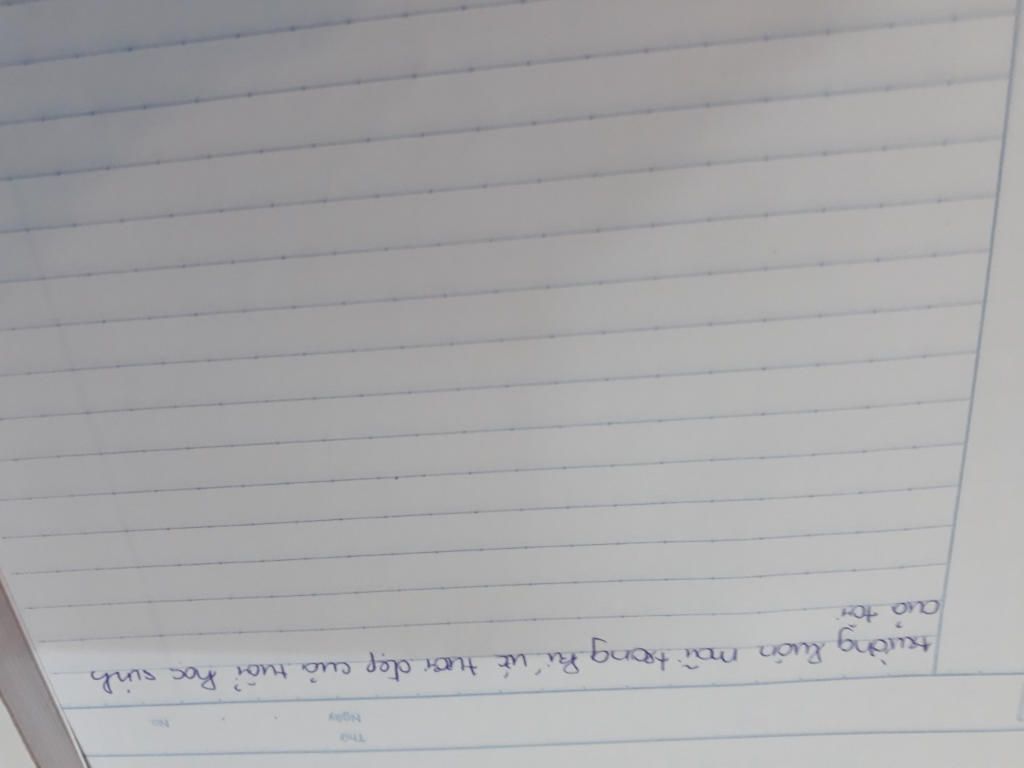 Thứ
Ngày No.
trường luôn mãi trong kí ức tươi đẹp của tuổi học sinh
của tôi